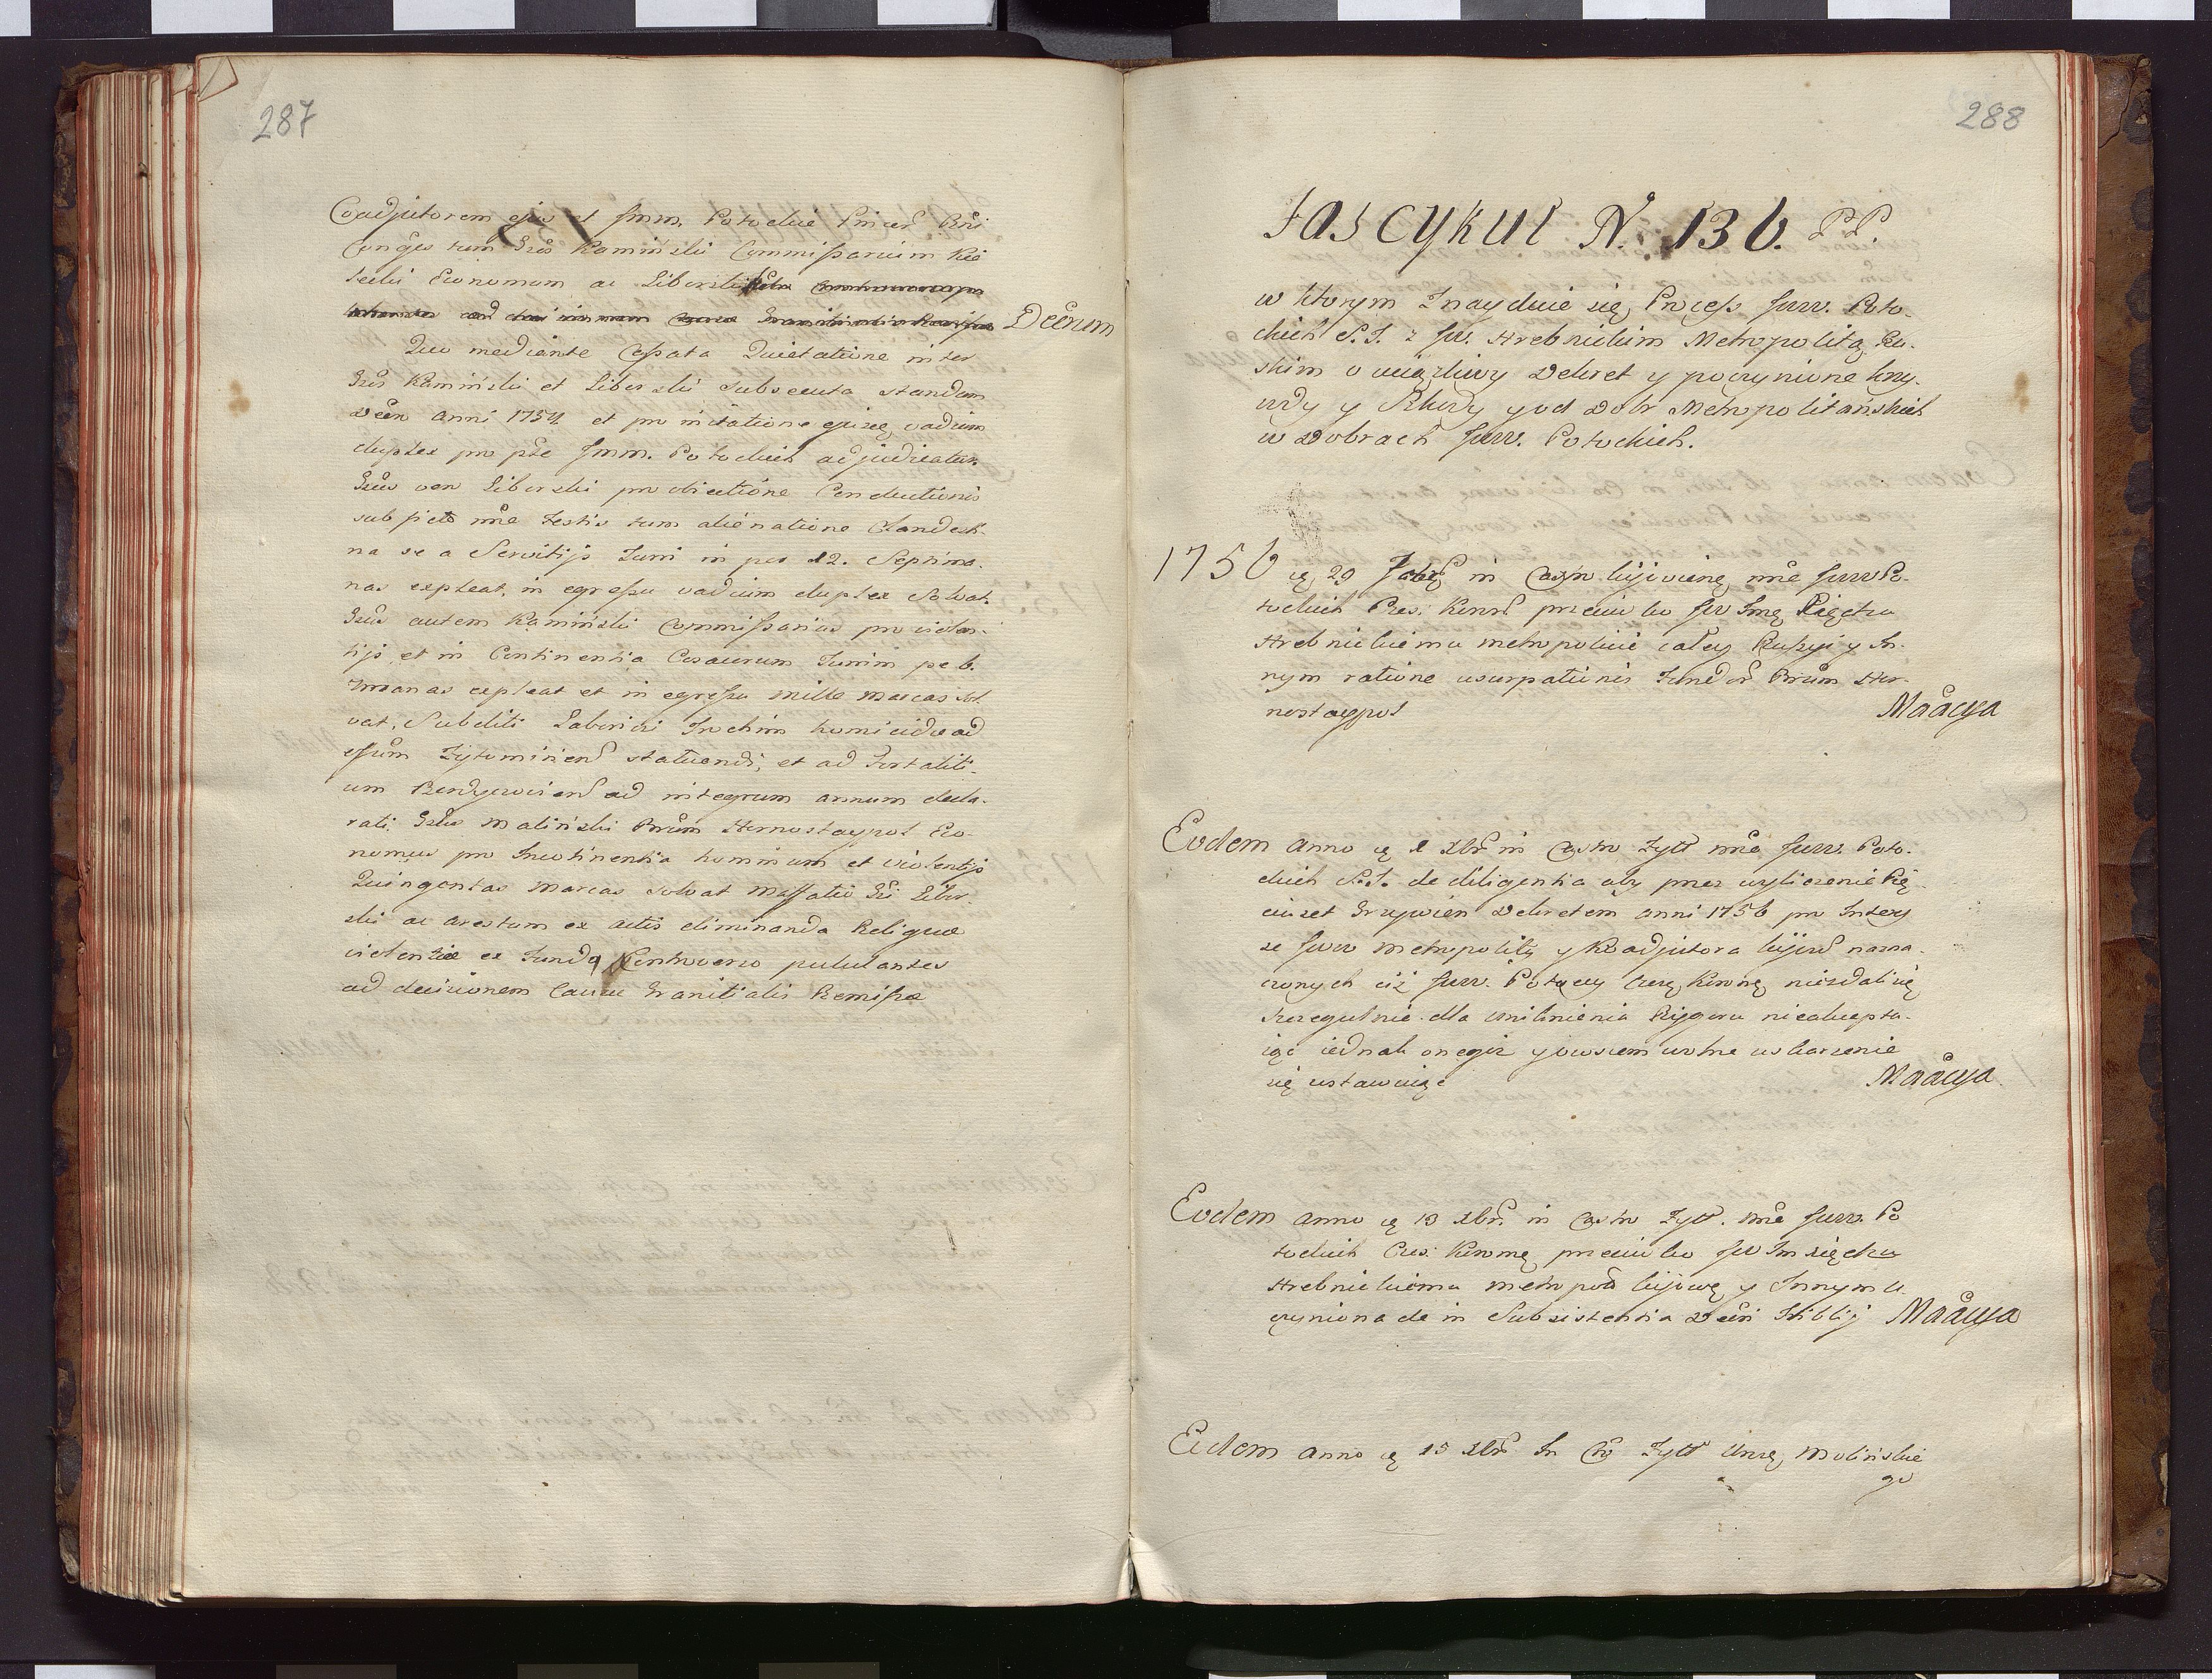 287
Coadjutorem ejus et Jmm. Potockie Pincer Rni
Conges tum Gros Kaminski Commissarium Kie
Economum ac Liberski
Decrum
Quo mediante Cassata Quietatione inter
Gros Kaminski et Liberski subsecuta standum
Decr. anni 1754 et pro irritatione ejusq vadium
duplex pro pte Jmm. Potockich adjudicatur.
Grus vero Liberski pro objectione Conductionis
sub ficto nne testis tum alienatione Clandesti-
na se a Servitijs Turri in per 12. Septima-
nas expleat, in egressu vadium duplex Solvat.
Grus autem Kaminski Commissarius pro violen-
tijs et in Continentia Turrim per 6.
expleat et in egressu mille marcas sol
vat, Subditi homicidae ad
Zytomiriens statuendi, et ad Fortaliti-
um ad integrum annum decla-
rati. Grus Malinski Brum Hornostaypol Eco-
nomus pro Incontinentia hominum et violentijs
Quingentas Marcas solvat Gri Liber-
ski ac arestum ex actis eliminanda Reliquae
violentiae ex fundo Controverso pululantes
ad decisionem Causae Granitialis Remissae
288
Fascykuł N. 136. PP.
w ktorym Znayduie się Process Jww. Poto-
ckich S.J. z Jw. Hrebnickim Metropolitą Ru-
skim o uciążliwy Dekret y poczynione krzy-
wdy y Szkody y od Dobr Metropolitańskich
w Dobrach Jww. Potockich.
1756 ą 29 in Castro kijovieñ nne Jww Po-
tockich Czes. Koron przeciwko Jw Jmę Xiędzu
Hrebnickiemu Metropolicie całey Russyi y In-
nym ratione usurpationis Fundor Brum Hor-
nostaypol
Maacya
Eodem anno ą 1 Xbr in Castro Zytt nne Jww. Poto-
ckich S.J. de diligentia aby przez wyliczenie Pię-
ciuset Grzywien Dekretem anni 1756 pro
se Jww Metropolity y Koadjutora kijow nazna-
czonych ciż Jww. Potoccy Czes. Koronę niezdali się
szczegulnie dla Uniknienia Ryggoru nieakcepto-
iąc iednak onegoż y owszem wolne uskarzenie
się ustawuiąc
Maacya
Eodem anno ą 13 Xbr in Castro Zytt. nne Jww. Po
tockich Czes. Koronnę przeciwko Jw Jm Xiędzu
Hrebnickiemu Metropol kijowę y Innym u
czyniona de in Subsistentia Decri
Maacya
Eodem anno ą 15 Xbr In Zytt Urzę Molińskie
go